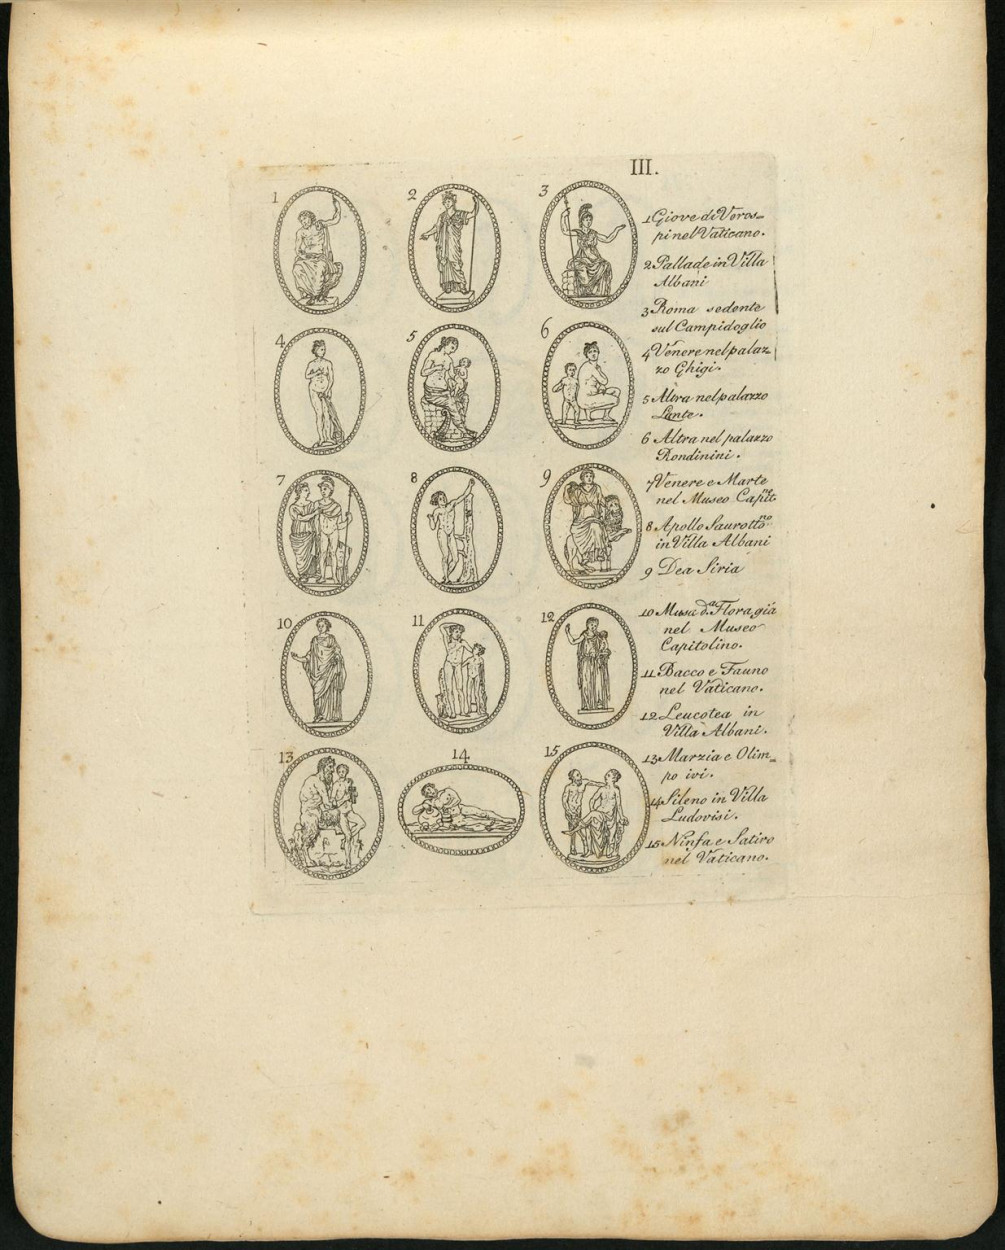 III.
1
2
3
4
5
6
7
8
9
10
11
12
13
14
15
1 Giove di Veros=
pi nel Vaticano.
2 Pallade in Villa
Albani
3 Roma sedente
sul Campidoglio
4 Venere nel palaz
zo Ghigi.
5 Altra nel palazzo
Lante.
6 Altra nel palazzo
Rondinini.
7 Venere e Marte
nel Museo Capit.no
8 Apollo Saurotto.no
in Villa Albani
9 Dea Siria
10 Musa d.a Flora già
nel Museo
Capitolino.
11 Bacco e Fauno
nel Vaticano.
12 Leucotea in
Villa Albani.
13 Marzia e Olim=
po ivi.
14 Sileno in Villa
Ludovisi.
15 Ninfa e Satiro
nel Vaticano.